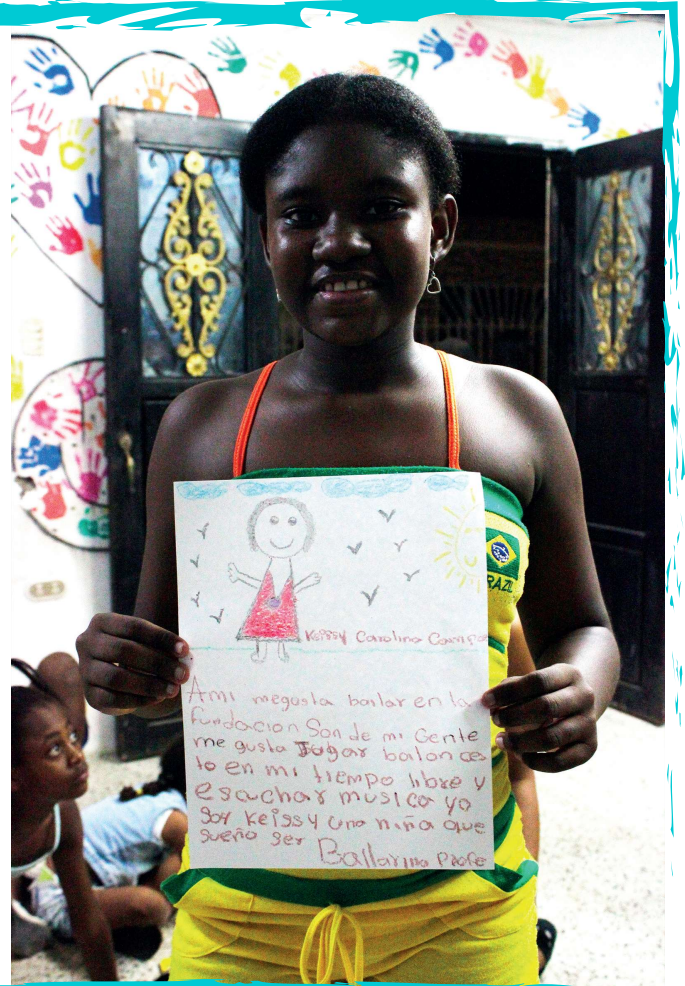 RAZIL
Keissy Carolina Campo
A mi megusta bailar en la
fundacion Son de mi Gente
me gusta Jugar balon ces
to en mi tiempo libre y
escuchar musica yo
Soy Keissy una niña que
sueño ser Bailarina Profe